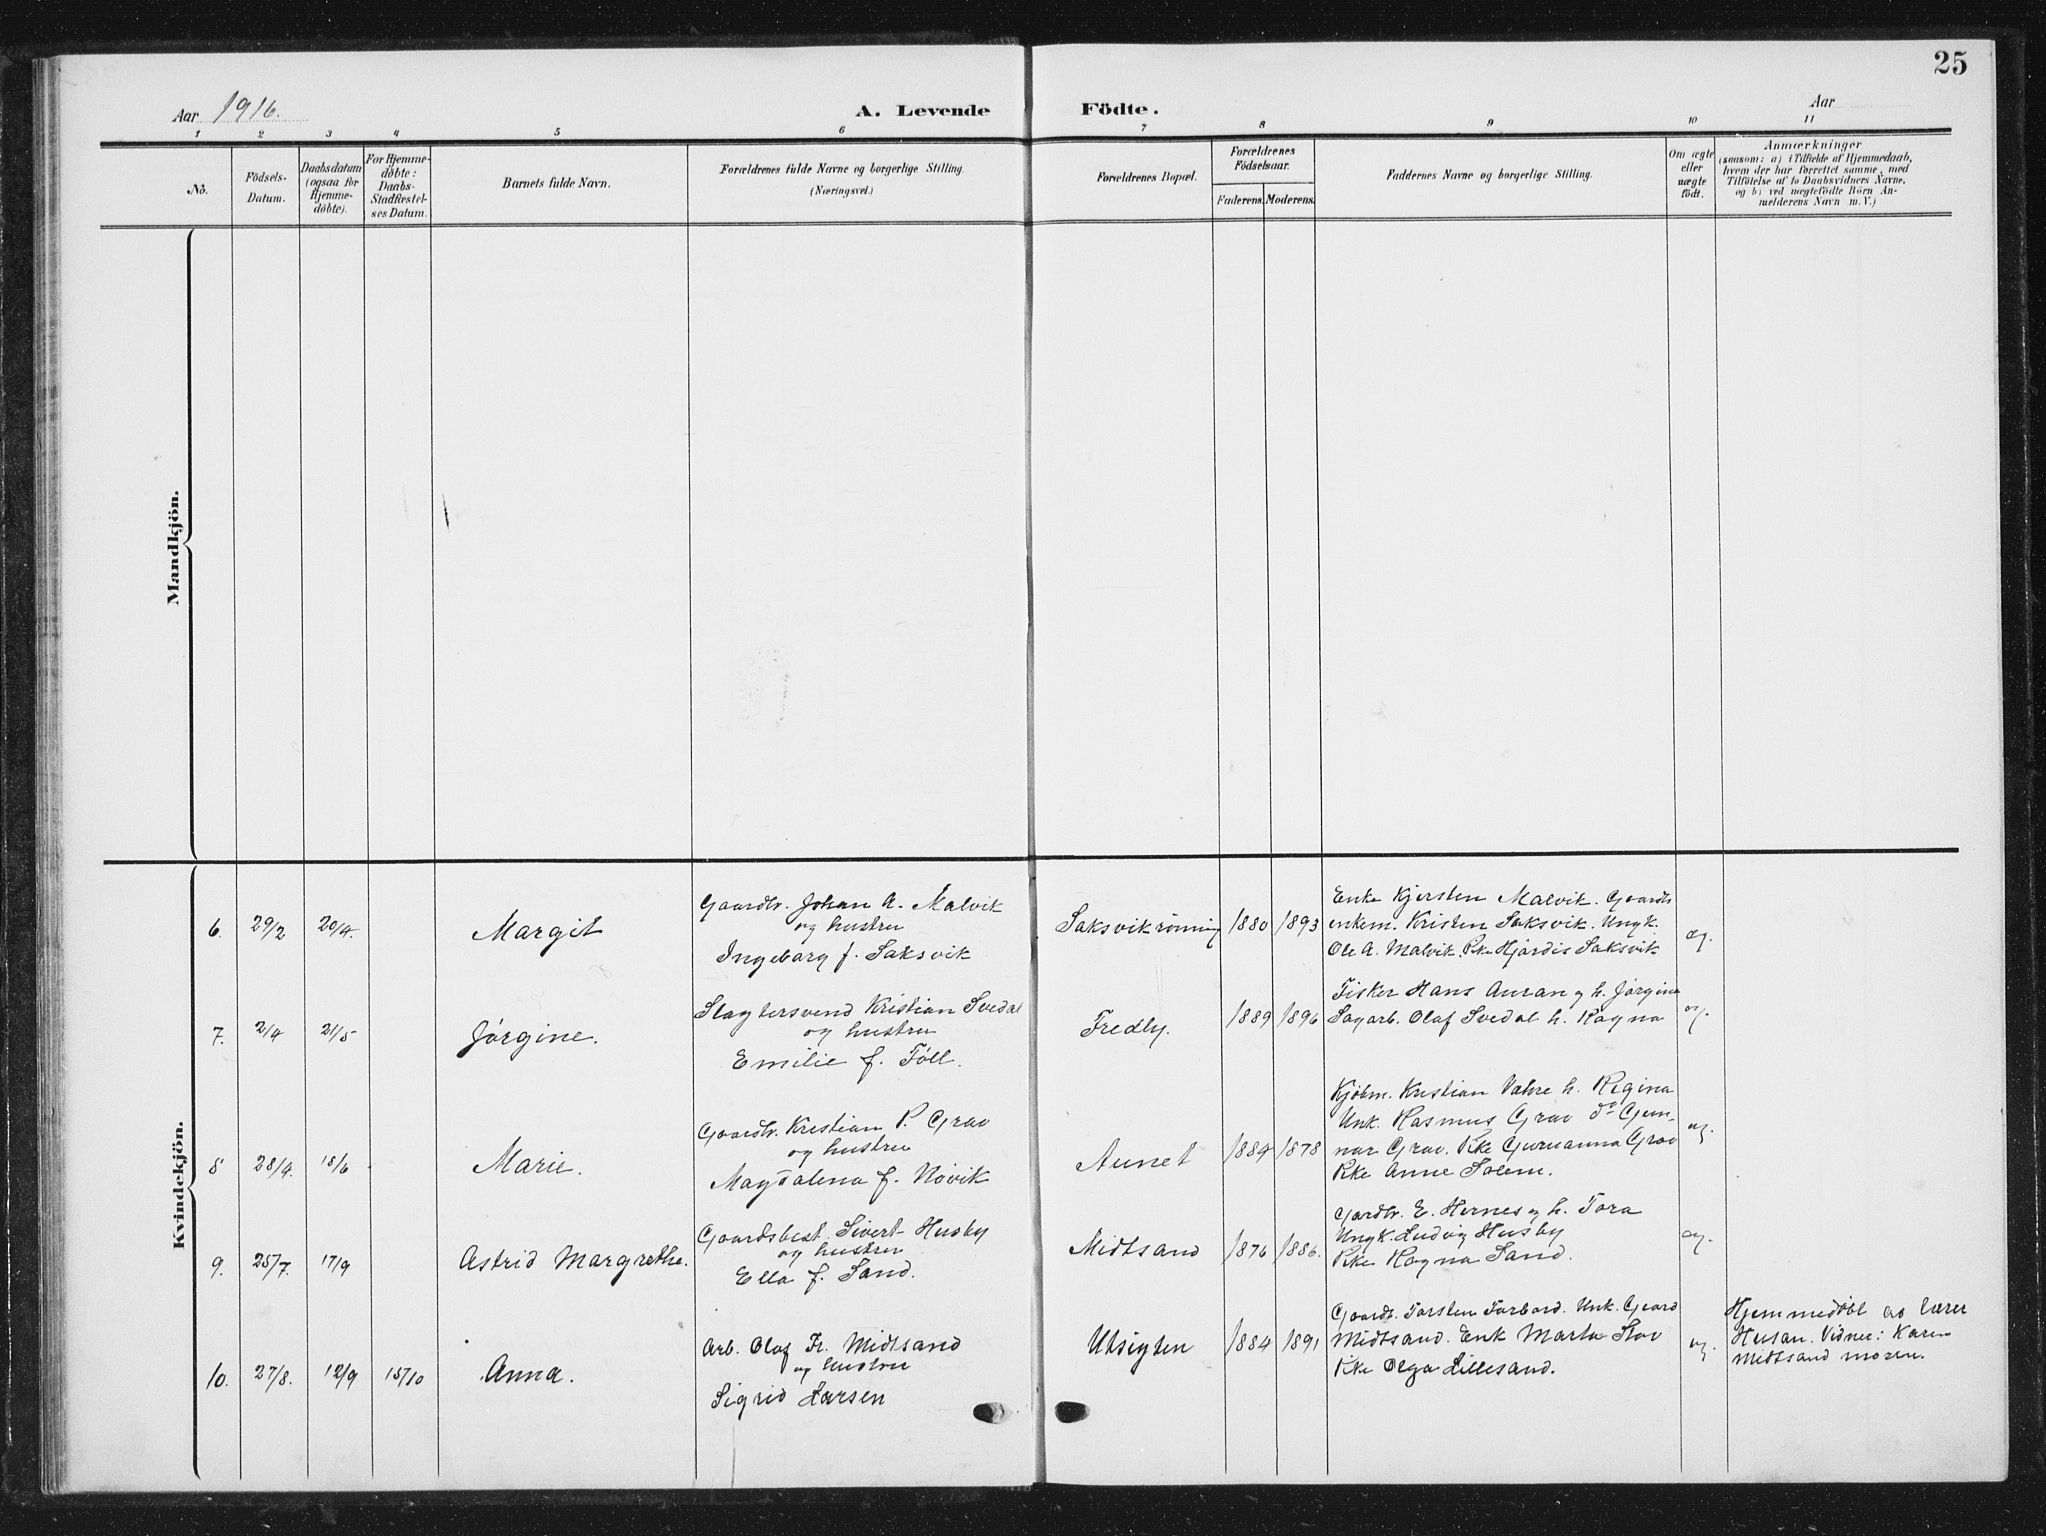 25
Aar 1916.
A. Levende Födte.
Aar
1 2 3 4 5 6 7 8 9 10 11
No.
Födsels-
Datum.
Daabsdatum
(ogsaa for
Hjemme-
döbte).
For Hjemme-
döbte:
Daabs-
Stadfæstel-
ses Datum.
Barnets fulde Navn.
Forældrenes fulde Navne og borgerlige Stilling.
(Næringsvei.)
Forældrenes Bopæl.
Forældrenes
Födselsaar.
Faderens. Moderens.
Faddernes Navne og borgerlige Stilling.
Om ægte
eller
uægte
födt.
Anmærkninger
(saasom: a) i Tilfælde af Hjemmedaab,
hvem der har forrettet samme, med
Tilföielse af to Daabsvidners Navne,
og b) ved uægtefödte Börn An-
melderens Navn m.V.)
Mandkjön.
Kvindekjön.
6. 29/2 20/4. Margit
Gaardbr. Johan A. Malvik
og hustru
Ingeborg f. Saksvik
Saksvikrönning 1880 1893
Enke Kjersten Malvik. Gaardb
enkem. Kristen Saksvik. Ungk.
Ole A. Malvik. Pike Hjördis Saksvik
æg.
7. 2/4 21/5 Jörgine.
Slagtersvend Kristian Svedal
og hustru
Emilie f. Föll.
Fredly. 1889 1896
Fisker Hans Auran og h. Jörgine
Sagarb. Olaf Svedal h. Ragna
æg.
8 28/4. 18/6 Marie.
Gaardbr. Kristian P. Grav
og hustru
Magdalena f. Növik
Aunet 1884 1878
Kjöbm. Kristian Vahre h. Regina
Unk. Rasmus Grav do Gun-
nar Grav. Pike Guruanna Grav
Pike Anne Solem.
æg.
9. 25/7. 17/9 Astrid Margrethe.
Gaardsbest. Sivert Husby
og hustru
Ella f. Sand.
Midtsand 1876 1886.
Gardbr. E. Hernes og h. Tora
Ungk. Ludvig Husby
Pike Ragna Sand.
æg.
10. 27/8. 12/9 15/10 Anna.
Arb. Olaf Fr. Midtsand
og hustru
Sigrid Larsen
Utsigten 1884 1891
Gaardb. Torsten Torbord. Unk. Geard
Midtsand. Enk Marta Stav
Pike Olga Lillesand.
æg.
Hjemmedöbt av lærer
Husan. Vidner: Karen
Midtsand moren.